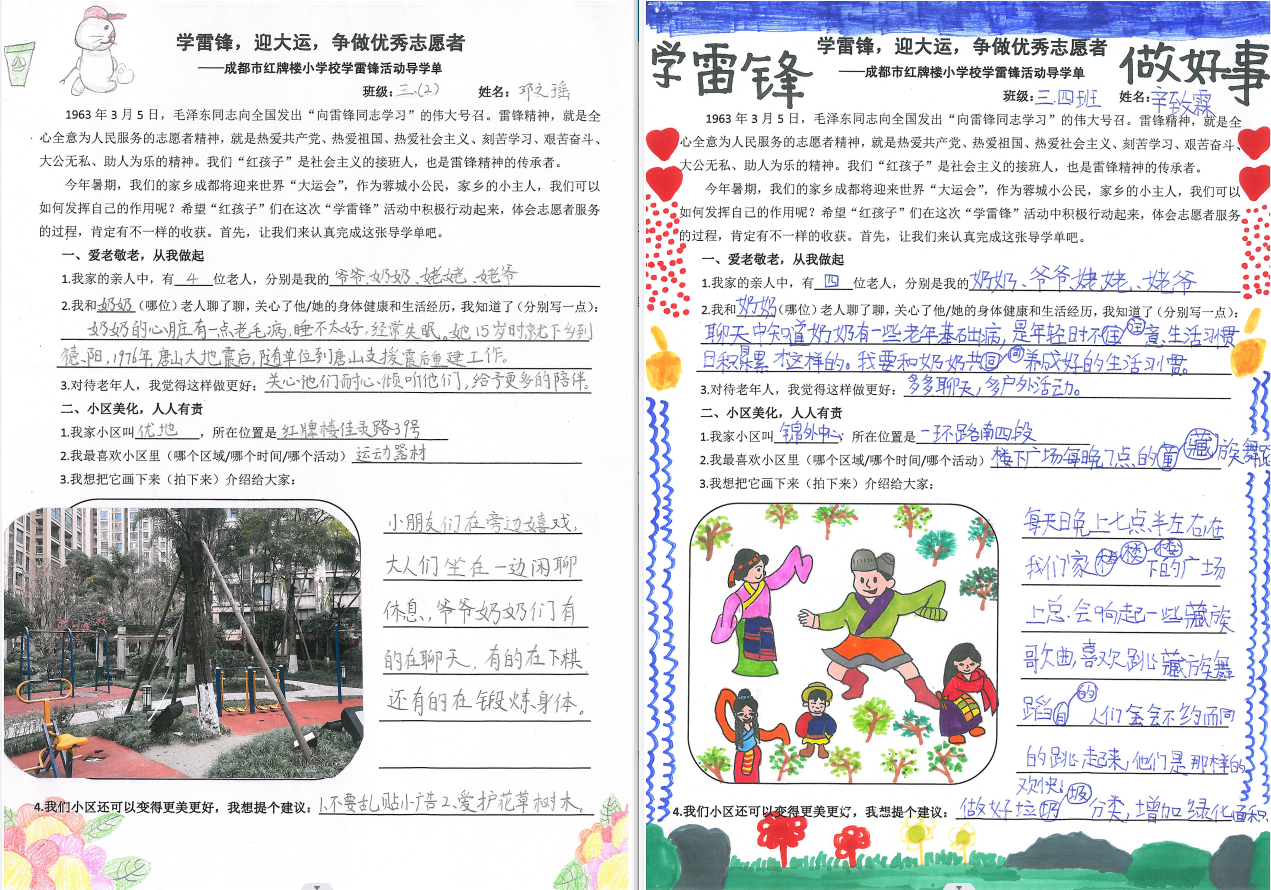 学雷锋，迎大运，争做优秀志愿者
——成都市红牌楼小学校学雷锋活动导学单
班级：三.(2) 姓名：邓之瑶
1963 年 3 月 5 日，毛泽东同志向全国发出“向雷锋同志学习”的伟大号召。雷锋精神，就是全
心全意为人民服务的志愿者精神，就是热爱共产党、热爱祖国、热爱社会主义、刻苦学习、艰苦奋斗、
大公无私、助人为乐的精神。我们“红孩子”是社会主义的接班人，也是雷锋精神的传承者。
今年暑期，我们的家乡成都将迎来世界“大运会”，作为蓉城小公民，家乡的小主人，我们可以
如何发挥自己的作用呢？希望“红孩子”们在这次“学雷锋”活动中积极行动起来，体会志愿者服务
的过程，肯定有不一样的收获。首先，让我们来认真完成这张导学单吧。
一、爱老敬老，从我做起
1.我家的亲人中，有 4 位老人，分别是我的 爷爷、奶奶、姥姥、姥爷
2.我和奶奶(哪位）老人聊了聊，关心了他/她的身体健康和生活经历，我知道了（分别写一点）：
奶奶的心脏有一点老毛病，睡不太好，经常失眠。她15岁时就下乡到
德.阳，1976年唐山大地震后，随单位到唐山支援震后重建工作。
3.对待老年人，我觉得这样做更好：关心他们，耐心倾听他们，给予更多的陪伴。
二、小区美化，人人有责
1.我家小区叫 优地 ，所在位置是 红牌楼佳灵路3号
2.我最喜欢小区里（哪个区域/哪个时间/哪个活动）运动器材
3.我想把它画下来（拍下来）介绍给大家：
小朋友们在旁边嬉戏，
大人们坐在一边闲聊
休息，爷爷奶奶们有
的在聊天，有的在下棋
还有的在锻炼身体。
4.我们小区还可以变得更美更好，我想提个建议：1.不要乱贴小广告2.爱护花草树木。
学雷锋 做好事
学雷锋，迎大运，争做优秀志愿者
——成都市红牌楼小学校学雷锋活动导学单
班级：三.四班 姓名：辛致霖
1963 年 3 月 5 日，毛泽东同志向全国发出“向雷锋同志学习”的伟大号召。雷锋精神，就是全
心全意为人民服务的志愿者精神，就是热爱共产党、热爱祖国、热爱社会主义、刻苦学习、艰苦奋斗、
大公无私、助人为乐的精神。我们“红孩子”是社会主义的接班人，也是雷锋精神的传承者。
今年暑期，我们的家乡成都将迎来世界“大运会”，作为蓉城小公民，家乡的小主人，我们可以
如何发挥自己的作用呢？希望“红孩子”们在这次“学雷锋”活动中积极行动起来，体会志愿者服务
的过程，肯定有不一样的收获。首先，让我们来认真完成这张导学单吧。
一、爱老敬老，从我做起
1.我家的亲人中，有 四 位老人，分别是我的 奶奶、爷爷、姥姥、姥爷
2.我和奶奶(哪位）老人聊了聊，关心了他/她的身体健康和生活经历，我知道了（分别写一点）：
聊天中知道奶奶有一些老年基础病，是年轻时不注意、生活习惯
日积累才这样的。我要和奶奶共同养成好的生活习惯。
3.对待老年人，我觉得这样做更好：多多聊天，多户外活动。
二、小区美化，人人有责
1.我家小区叫 锦外中心，所在位置是 一环路南四段
2.我最喜欢小区里（哪个区域/哪个时间/哪个活动）楼下广场每晚7点的藏族舞蹈
3.我想把它画下来（拍下来）介绍给大家：
每天日晚上七点半左右，在
我们家楼下的广场
上总会响起一些藏族
歌曲，喜欢跳藏族舞
蹈的人们会不约而同
的跳起来，他们是那样的
欢快！
4.我们小区还可以变得更美更好，我想提个建议：做好垃圾分类，增加绿化面积.